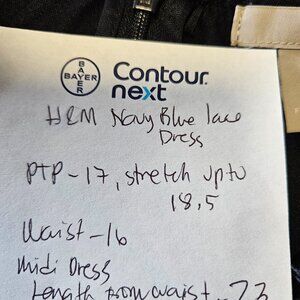 BAYER
BAYER
Contour
next
H&M Navy Blue lace
Dress
PTP - 17, stretch up to
18.5
Waist - 16
Midi Dress
Length from waist - 23